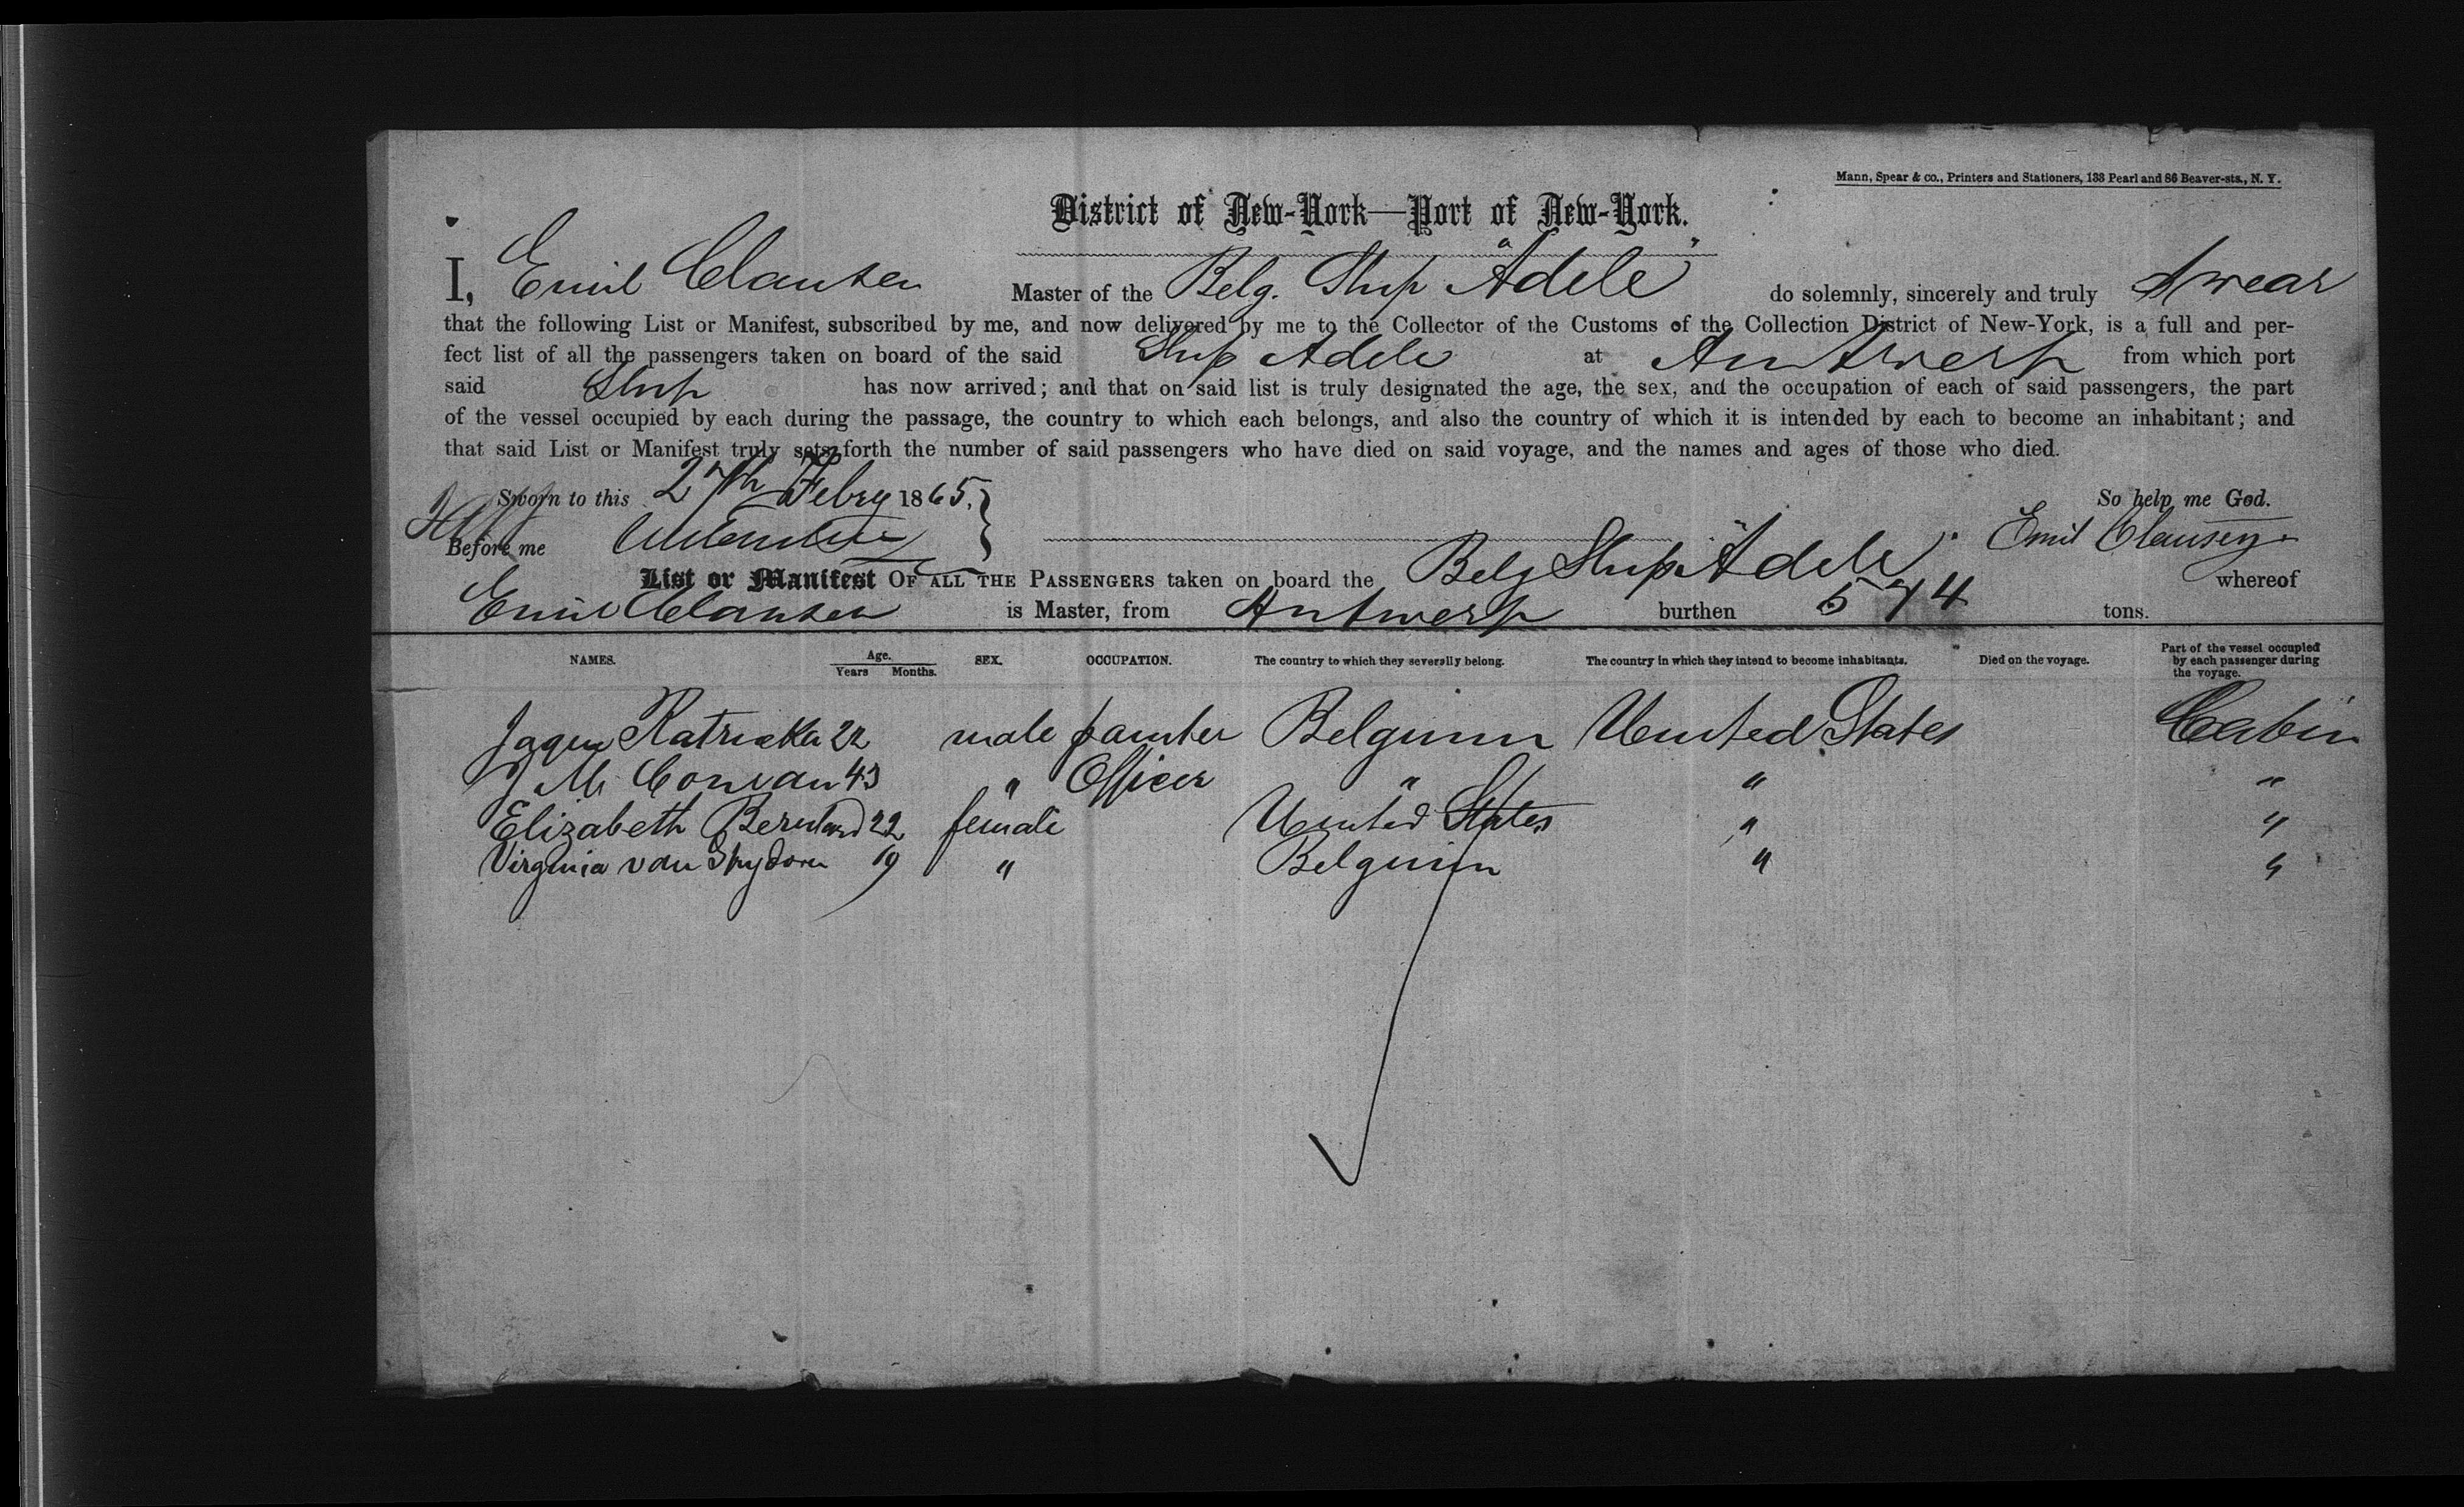 Mann, Spear & co., Printers and Stationers, 133 Pearl and 86 Beaver-sts., N. Y.
District of New-York—Port of New-York.
I, Emil Clausen Master of the Belg. Ship "Adele" do solemnly, sincerely and truly Swear
that the following List or Manifest, subscribed by me, and now delivered by me to the Collector of the Customs of the Collection District of New-York, is a full and per-
fect list of all the passengers taken on board of the said Ship Adele at Antwerp from which port
said Ship has now arrived; and that on said list is truly designated the age, the sex, and the occupation of each of said passengers, the part
of the vessel occupied by each during the passage, the country to which each belongs, and also the country of which it is intended by each to become an inhabitant; and
that said List or Manifest truly sets forth the number of said passengers who have died on said voyage, and the names and ages of those who died.
Sworn to this 27th Febry 1865. So help me God.
Before me Emil Clausen
List or Manifest OF ALL THE PASSENGERS taken on board the Belg Ship "Adele" whereof
Emil Clausen is Master, from Antwerp burthen 574 tons.
NAMES. Age. Years Months. SEX. OCCUPATION. The country to which they severally belong. The country in which they intend to become inhabitants. Died on the voyage. Part of the vessel occupied by each passenger during the voyage.
22 male painter Belguim United States Cabin
J M. 43 " Officer " " "
Elizabeth Bernhard 22 female United States " "
Virginia van 19 " Belguim " "